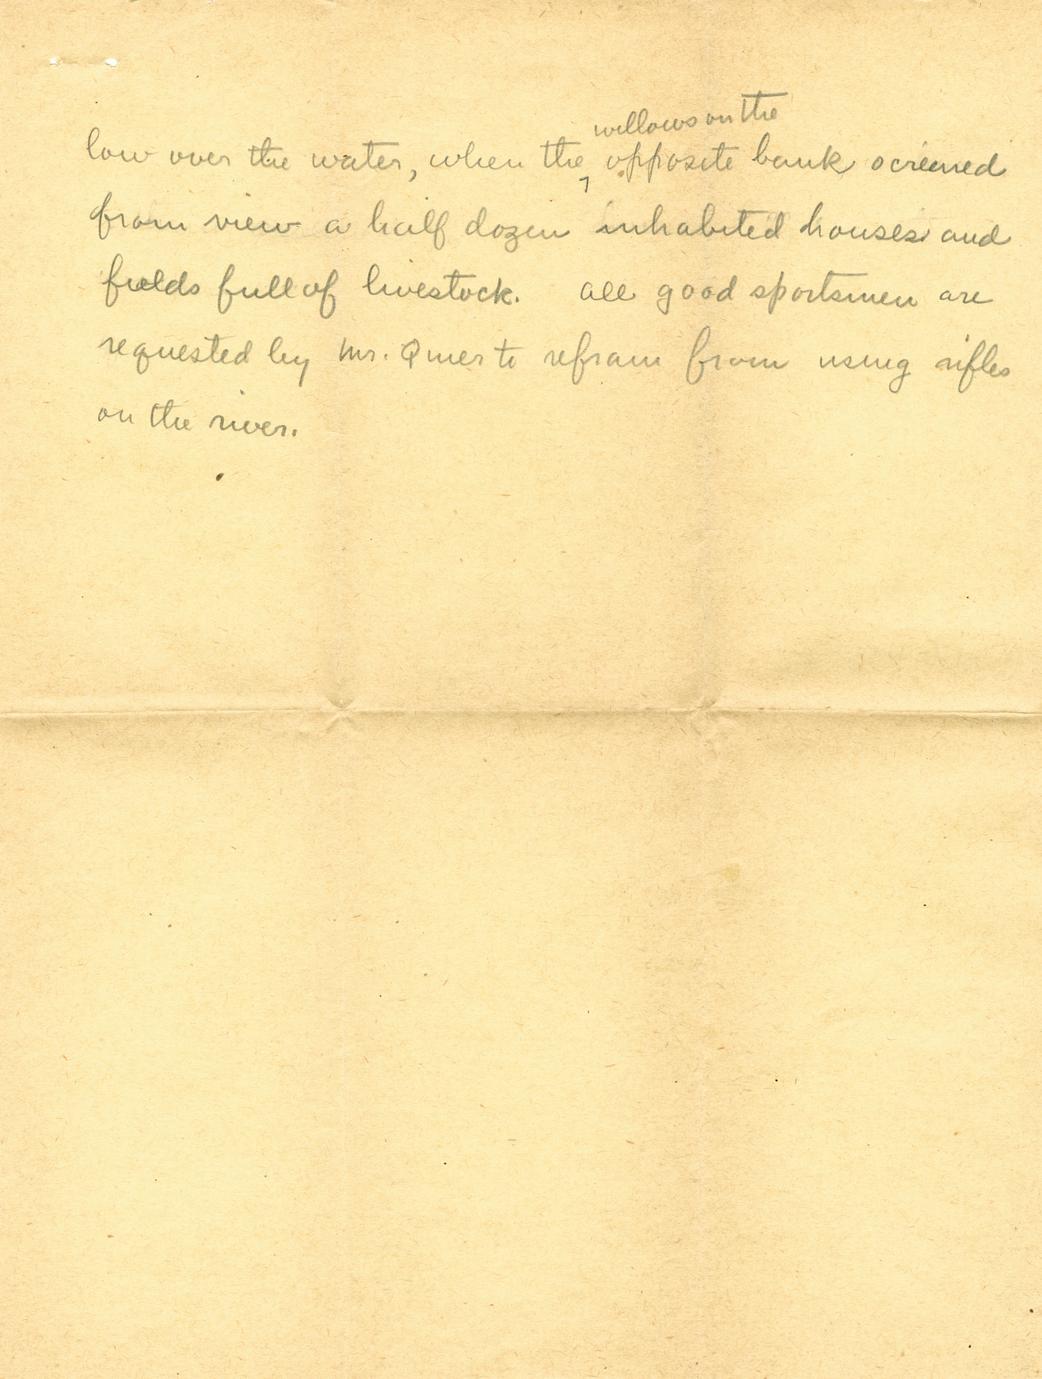 willows on the
low over the water, when the opposite bank screened
from view a half dozen inhabited houses and
fields full of livestock. All good sportsmen are
requested by Mr. to refrain from using rifles
on the river.